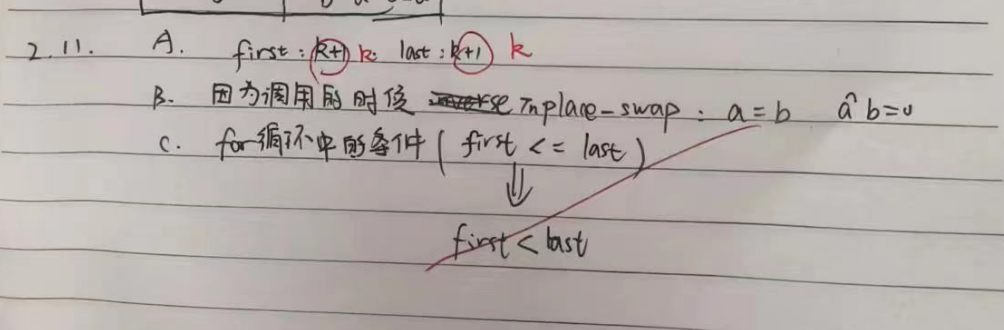 2.11. A. first: k+1 k. last: k+1 k
B. 因为调用的时候 inplace-swap: a=b a^b=0
C. for循环中的条件(first <= last)
⇓
first < last